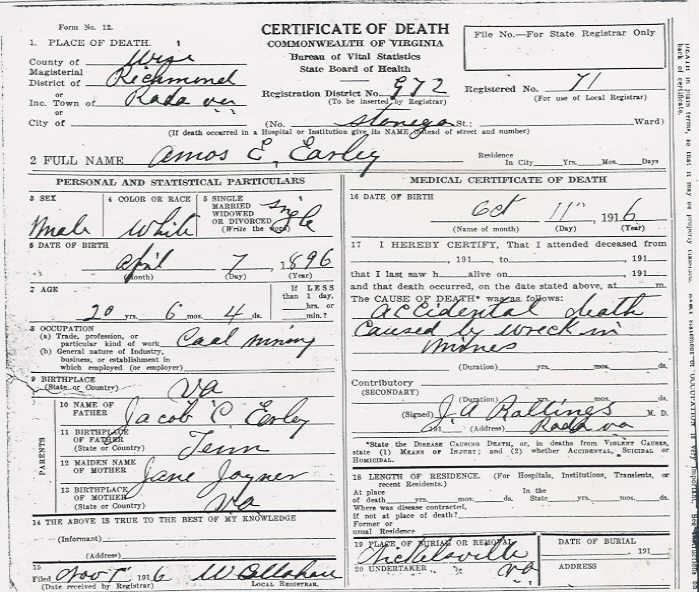 Form No. 12.
CERTIFICATE OF DEATH
COMMONWEALTH OF VIRGINIA
Bureau of Vital Statistics
State Board of Health
File No.—For State Registrar Only
1. PLACE OF DEATH.
County of Wise
Magisterial
District of Richmond
or
Inc. Town of Roda va
or
City of
Registration District No. 972
(To be inserted by Registrar)
Registered No. 71
(For use of Local Registrar)
(No. Stonega St.; Ward)
(If death occurred in a Hospital or Institution give its NAME instead of street and number)
2 FULL NAME Amos E, Earley
Residence
In City Yrs. Mos. Days
PERSONAL AND STATISTICAL PARTICULARS
3 SEX
Male
4 COLOR OR RACE
White
5 SINGLE
MARRIED
WIDOWED
OR DIVORCED
(Write the word)
Single
6 DATE OF BIRTH
April 7, 1896
(Month) (Day) (Year)
7 AGE
20 yrs. 6 mos. 4 ds.
If LESS
than 1 day,
hrs. or
min.?
8 OCCUPATION
(a) Trade, profession, or
particular kind of work Coal mining
(b) General nature of Industry,
business, or establishment in
which employed (or employer)
9 BIRTHPLACE
(State or Country) Va
PARENTS
10 NAME OF
FATHER Jacob C Earley
11 BIRTHPLACE
OF FATHER
(State or Country) Tenn
12 MAIDEN NAME
OF MOTHER Jane Joyner
13 BIRTHPLACE
OF MOTHER
(State or Country) Va
14 THE ABOVE IS TRUE TO THE BEST OF MY KNOWLEDGE
(Informant)
(Address)
15
Filed Nov 1, 1916 W Callahan
(Date received by Registrar) LOCAL REGISTRAR.
MEDICAL CERTIFICATE OF DEATH
16 DATE OF BIRTH
Oct 11, 1916
(Name of month) (Day) (Year)
17 I HEREBY CERTIFY, That I attended deceased from
, 191 to , 191
that I last saw h alive on , 191
and that death occurred, on the date stated above, at m.
The CAUSE OF DEATH* was as follows:
accidental death
caused by wreck in
mines
(Duration) yrs. mos. ds.
Contributory
(SECONDARY)
(Duration) yrs. mos. ds.
(Signed) J. A. M. D.
191 (Address) Roda va
*State the DISEASE CAUSING DEATH, or, in deaths from VIOLENT CAUSES,
state (1) MEANS OF INJURY; and (2) whether ACCIDENTAL, SUICIDAL or
HOMICIDAL.
18 LENGTH OF RESIDENCE. (For Hospitals, Institutions, Transients, or
recent Residents.)
At place In the
of death yrs. mos. ds. State yrs. mos. ds.
Where was disease contracted,
if not at place of death?
Former or
usual Residence
19 PLACE OF BURIAL OR REMOVAL
Nickelsville
va
DATE OF BURIAL
191
20 UNDERTAKER
ADDRESS
back of certificate.